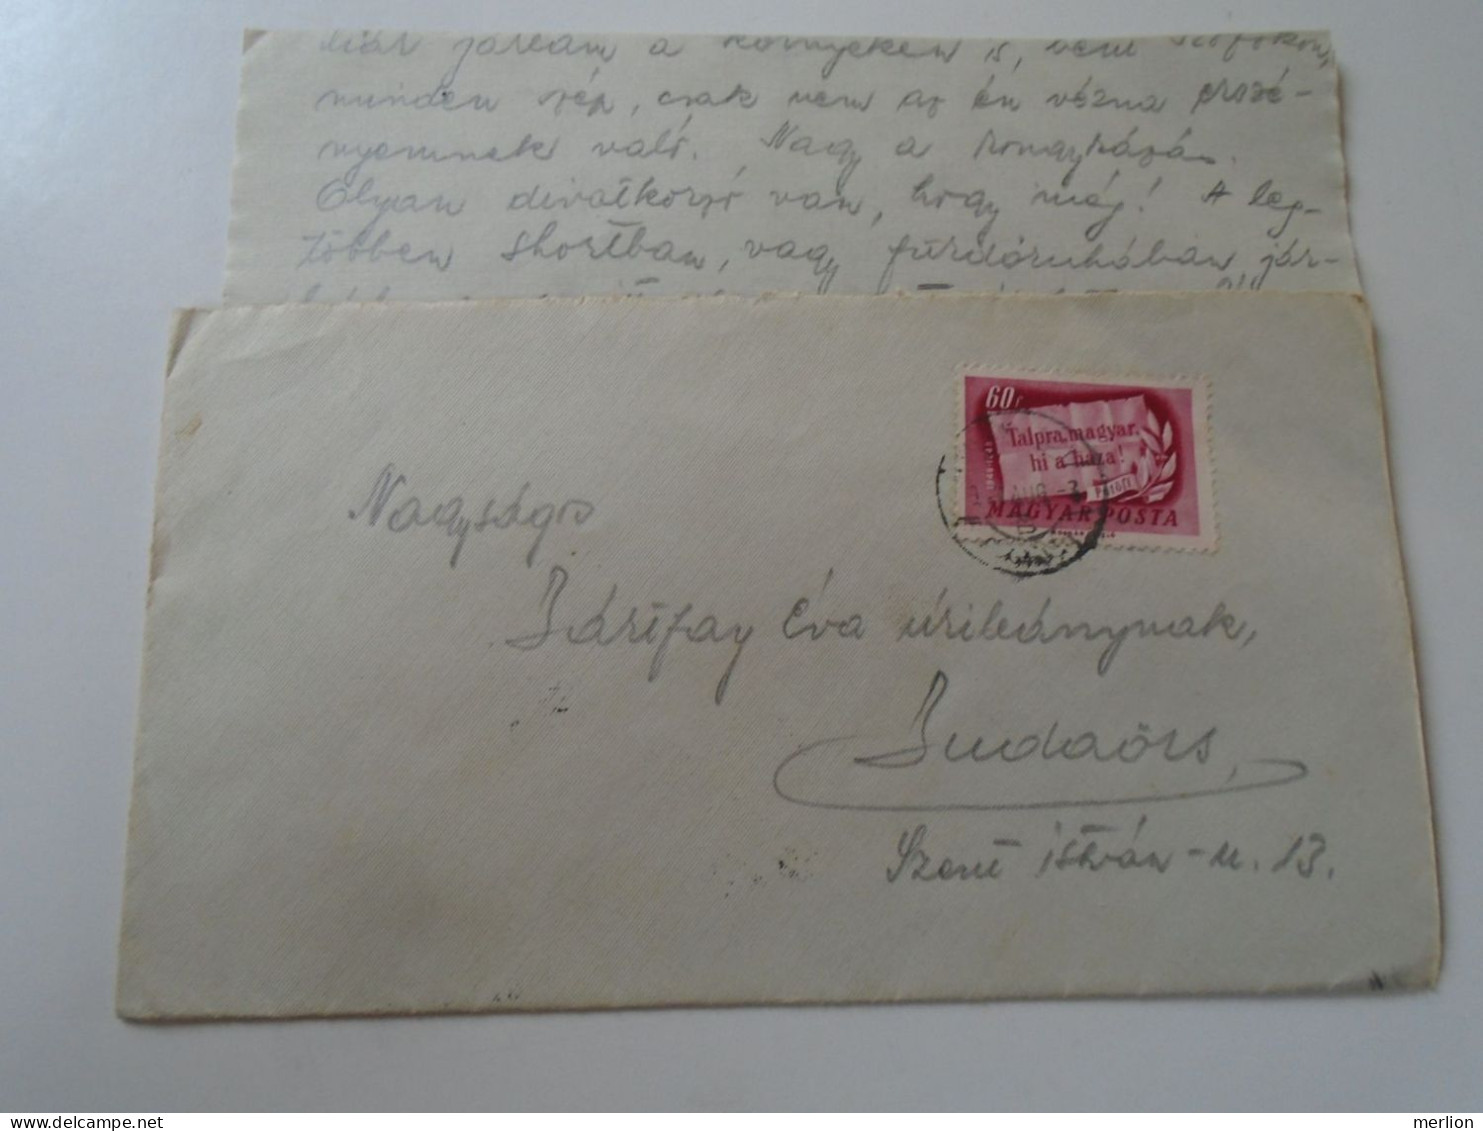 már jártam a környéken is, vent Siófokon,
minden szép, csak nem az én vézna erszé-
nyemnek való. Nagy a
Olyan divatkorzó van, hogy még! A leg-
többen shortban, vagy fürdőruhában jár-
60 f
Talpra magyar,
hi a haza!
Petőfi
MAGYAR POSTA
AUG
Nagyságos
Bártfay Éva úrileánynak,
Budaörs,
Szent István-u. 13.
merlion